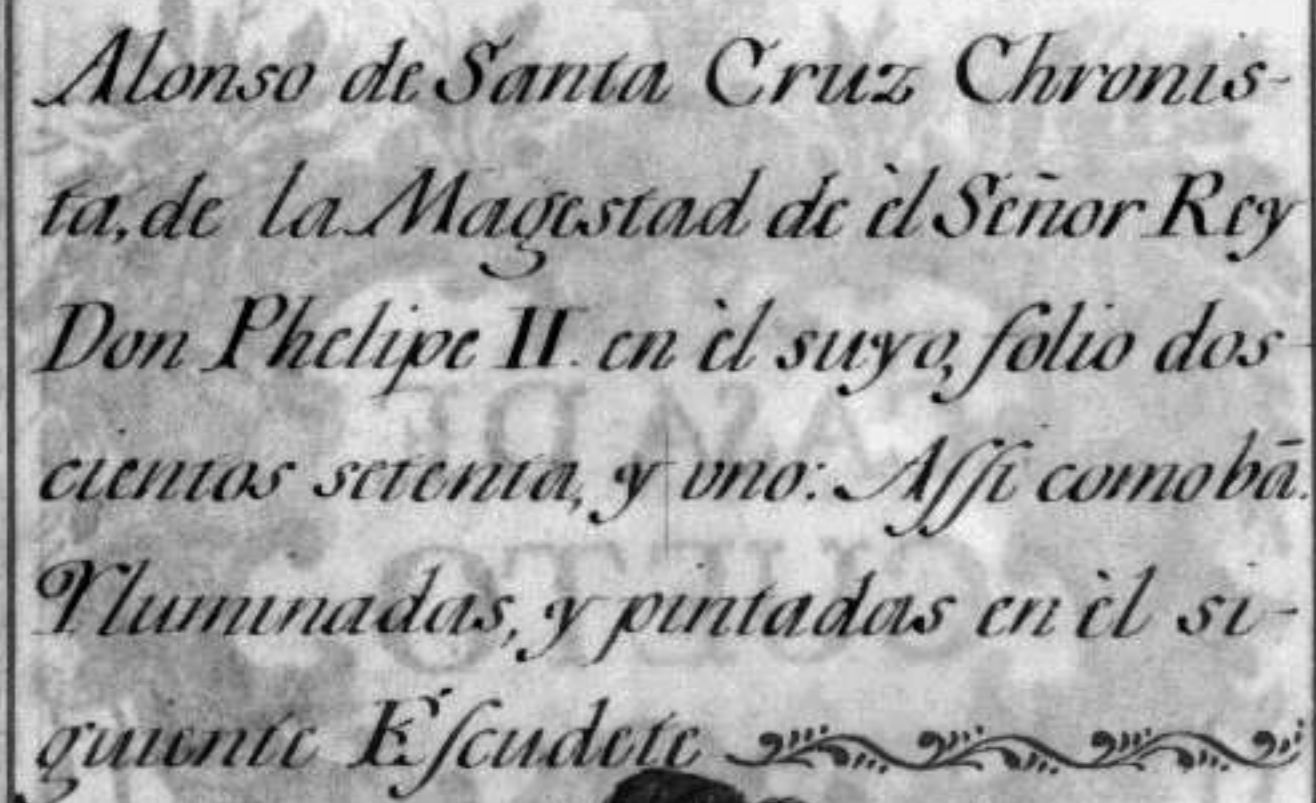 Alonso de Santa Cruz Chronis-
ta, de la Magestad de èl Señor Rey
Don Phelipe II. en èl suyo, folio dos-
cientos setenta, y uno: Assi como bā
Yluminadas, y pintadas en èl si-
guiente Escudete